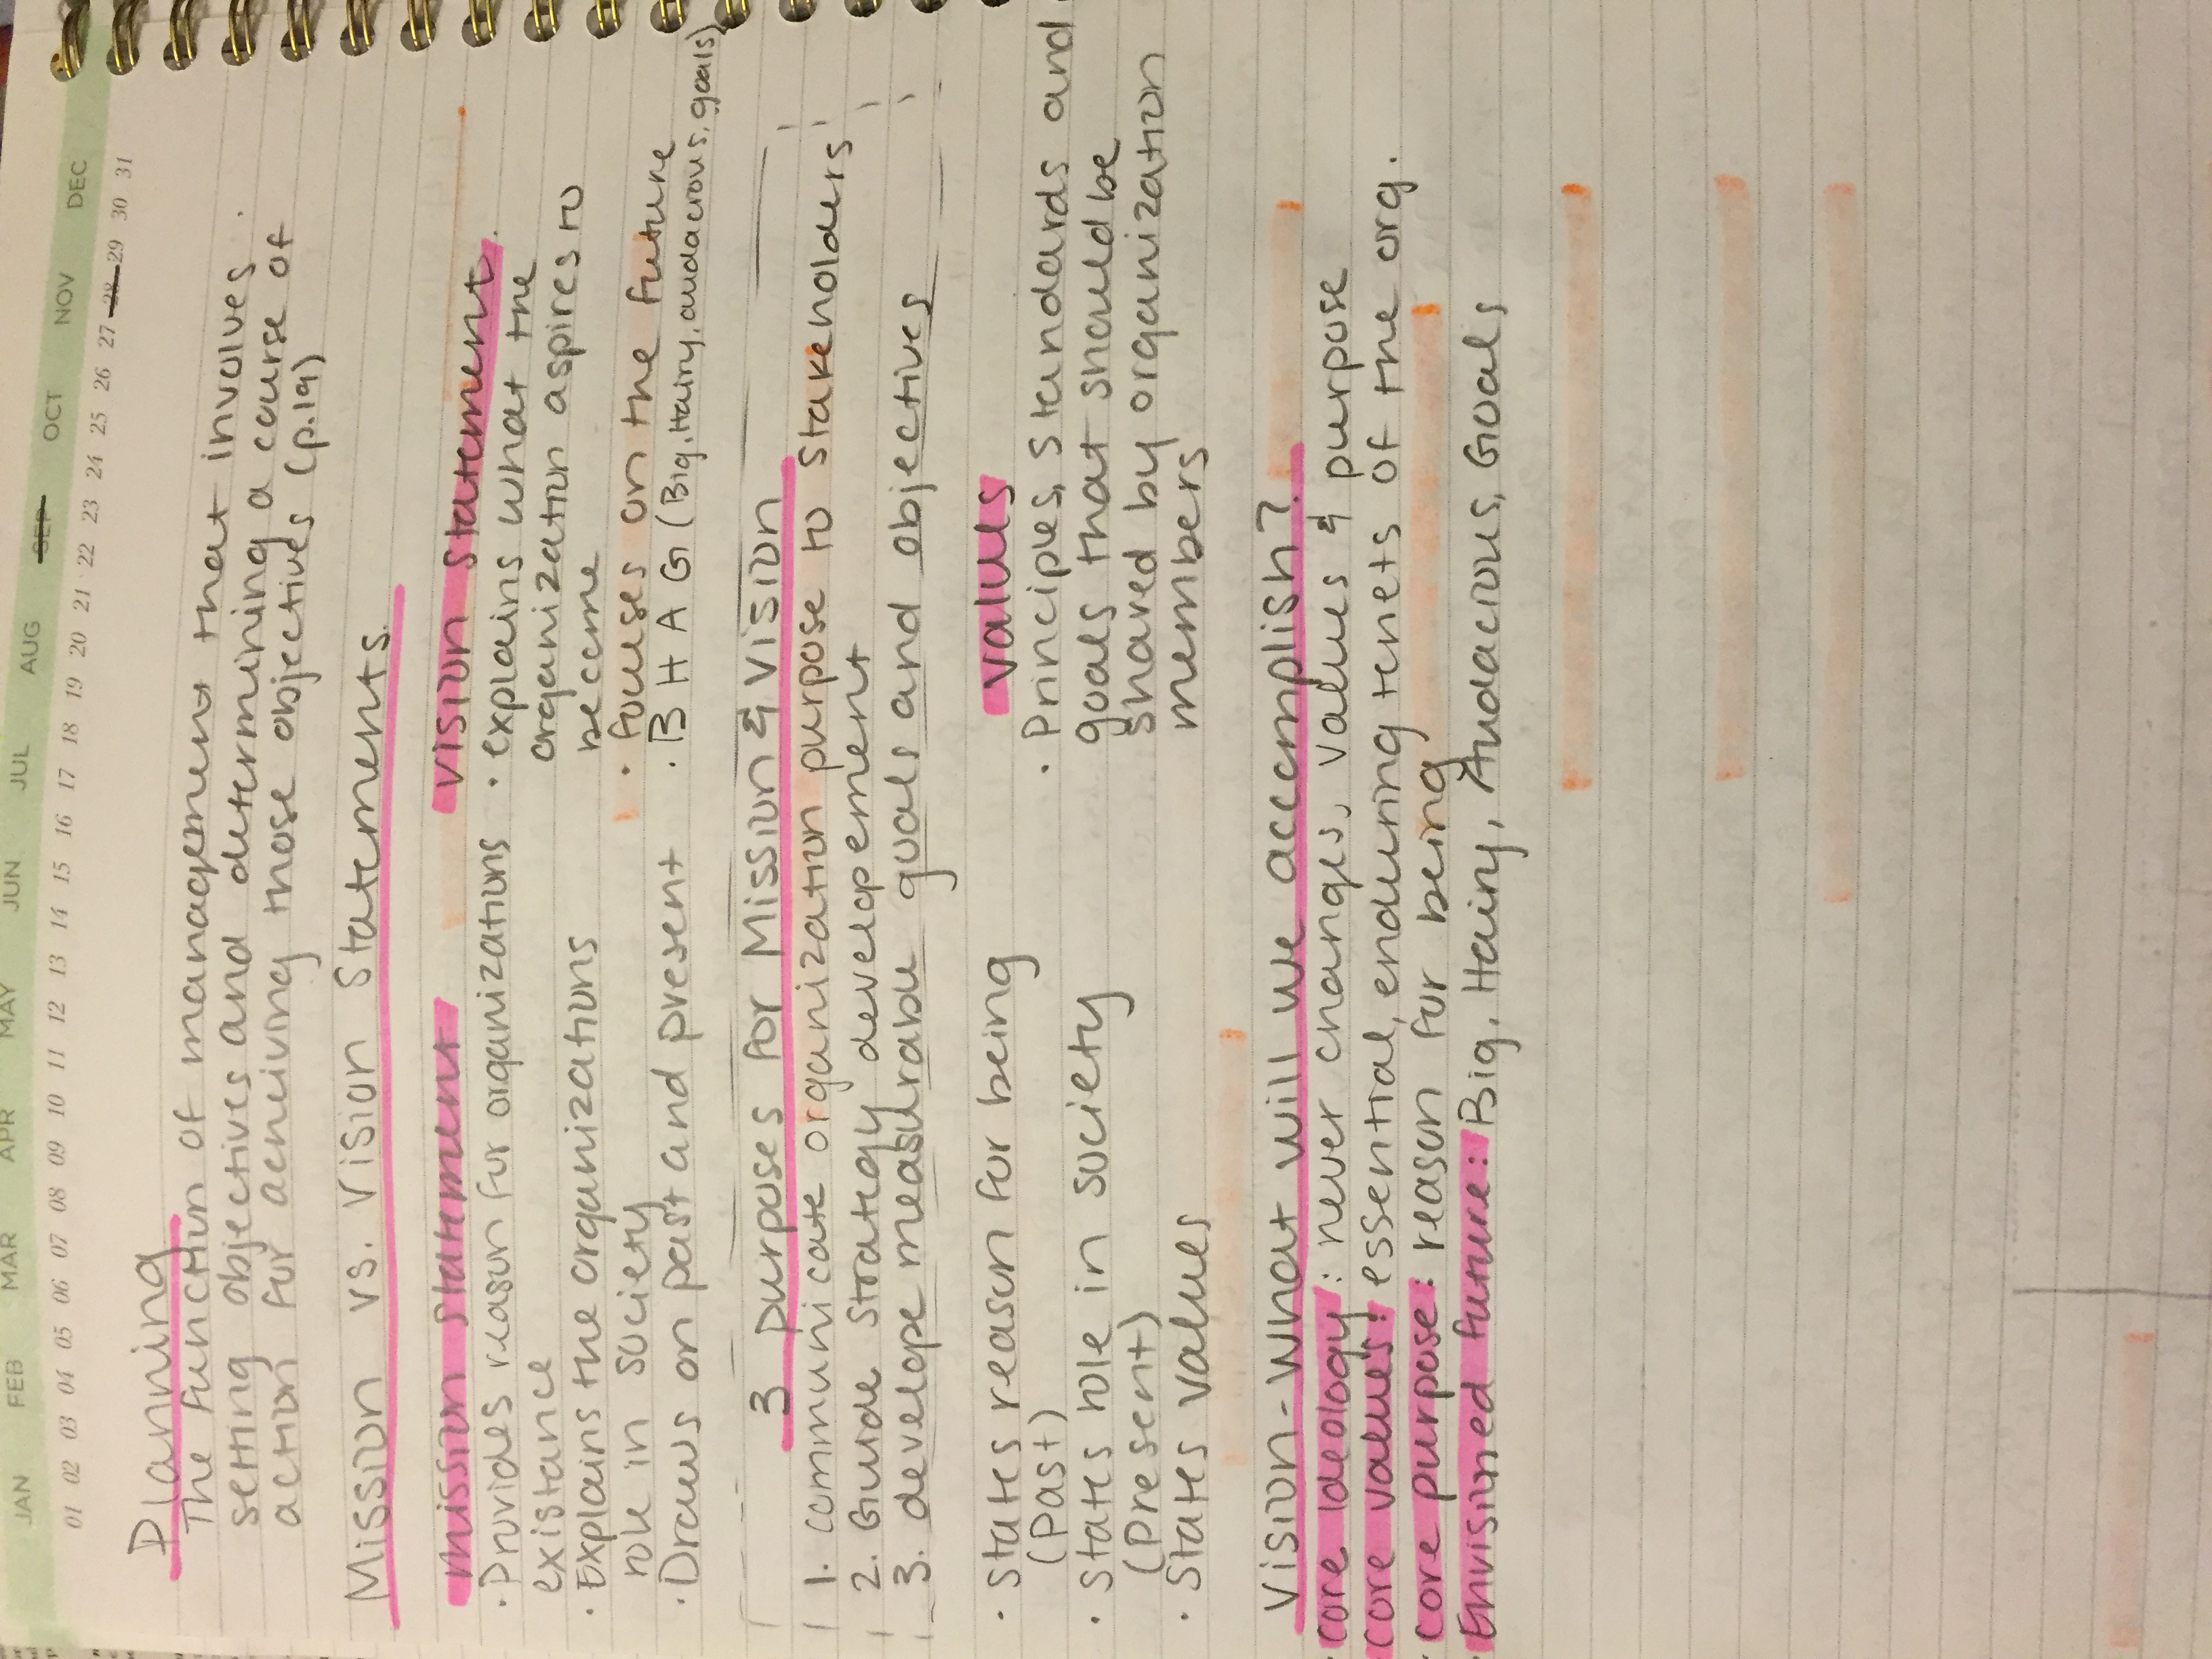 JAN FEB MAR APR MAY JUN JUL AUG SEP OCT NOV DEC
01 02 03 04 05 06 07 08 09 10 11 12 13 14 15 16 17 18 19 20 21 22 23 24 25 26 27 28 29 30 31
Planning
The function of management that involves
setting objectives and determining a course of
action for acheiving those objectives (p.19)
Mission vs. Vision Statements
mission statement
• Provides reason for organizations
existance
• Explains the organizations
role in society
• Draws on past and present
vision statement
• explains what the
organization aspires to
become
• fouses on the future
• B H A G (Big, Hairy, audacious, goals)
3 purposes for Mission & Vision
1. communicate organization purpose to stakeholders
2. Guide strategy developement
3. develope measurable goals and objectives
• States reason for being
(Past)
• States role in society
(Present)
• States values
values
• Principles, standards and
goals that should be
shared by organization
members
Vision - What will we accomplish?
• core ideology: never changes, values & purpose
• core values: essential, enduring tenets of the org.
• core purpose: reason for being
• Envisined future: Big, Hairy, Audacious, Goals